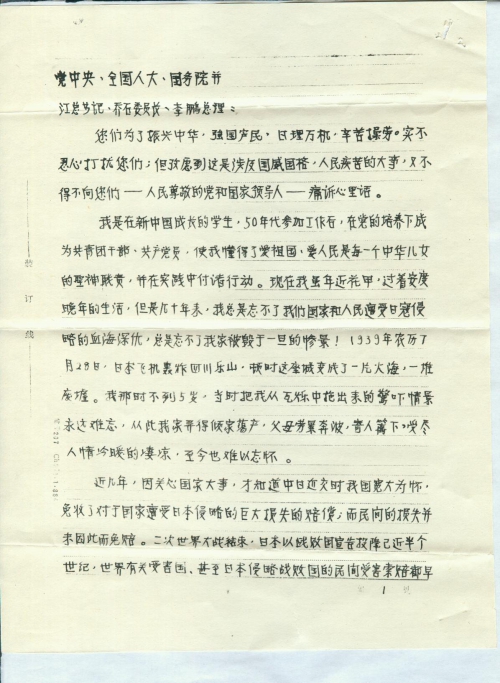 党中央、全国人大、国务院并
江总书记、乔石委员长、李鹏总理：
您们为了振兴中华，强国富民，日理万机，辛苦操劳。实不
忍心打扰您们；但考虑到这是涉及国威国格，人民疾苦的大事，又不
得不向您们——人民尊敬的党和国家领导人——痛诉心里话。
我是在新中国成长的学生，50年代参加工作后，在党的培养下成
为共青团干部、共产党员，使我懂得了爱祖国、爱人民是每一个中华儿女
的圣神职责，并在实践中付诸行动。现在我虽年近花甲，过着安度
晚年的生活，但是几十年来，我总是忘不了我们国家和人民遭受日寇侵
略的血海深仇，总是忘不了我家被毁于一旦的惨景！1939年农历7
月29日，日本飞机轰炸四川乐山，顿时这座城变成了一片火海，一堆
废墟。我那时不到5岁，当时把我从瓦砾中拖出来的惊吓情景
永远难忘，从此我家弄得倾家荡产，父母劳累奔波，寄人篱下，受尽
人情冷暖的凄凉，至今也难以忘怀。
近几年，因关心国家大事，才知道中日建交时我国宽大为怀，
免收了对于国家遭受日本侵略的巨大损失的赔偿；而民间的损失并
未因此而免赔。二次世界大战结束，日本以战败国宣告投降已近半个
世纪，世界有关受害国、甚至日本侵略战败国的民间受害索赔都早
装订线
1
页